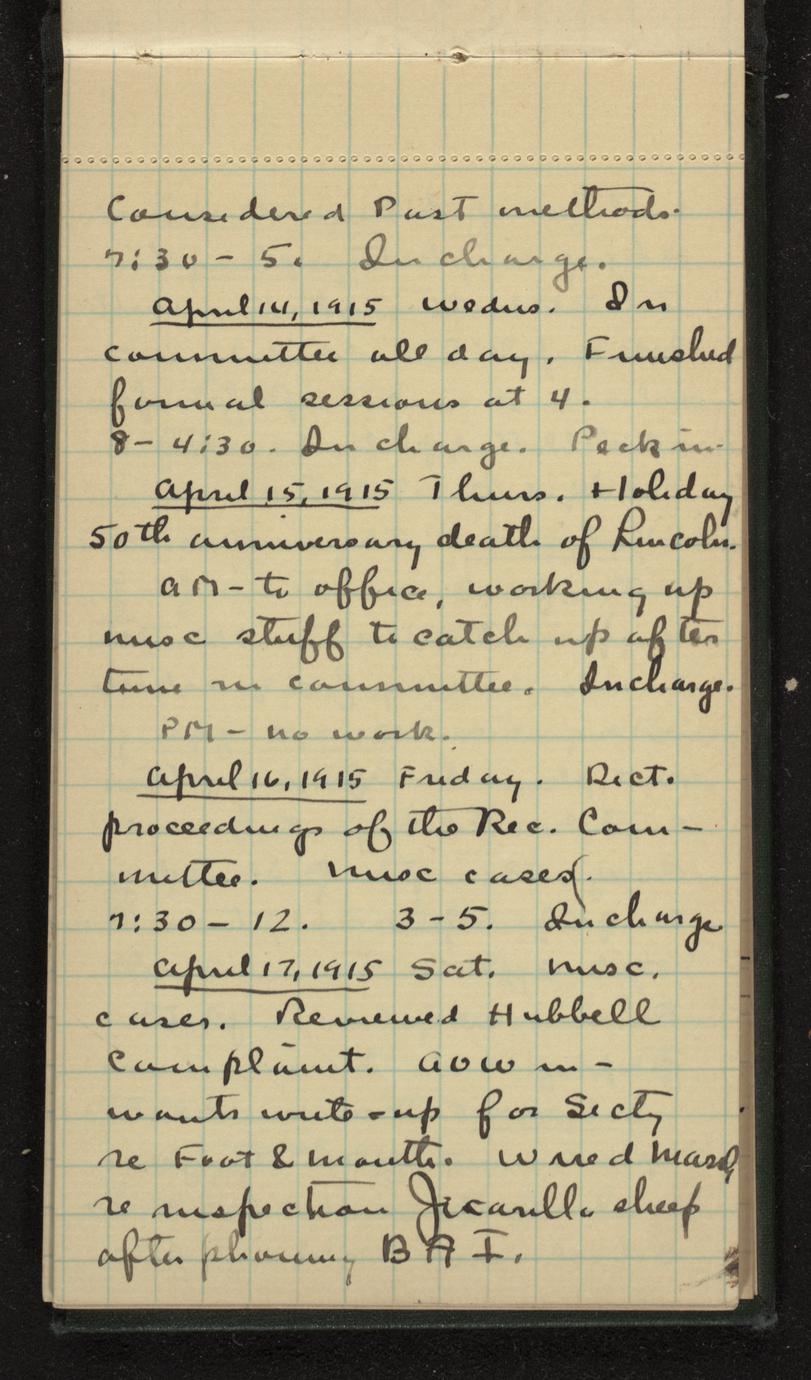 Considered Past methods.
7:30 - 5. In charge.
April 14, 1915 Wednes. In
committee all day. Finished
formal sessions at 4.
8 - 4:30. In charge. Peck in
April 15, 1915 Thurs. Holiday
50th anniversary death of Lincoln.
AM - to office, working up
misc stuff to catch up after
time in committee. In charge.
PM - no work.
April 16, 1915 Friday. Dict.
proceedings of the Rec. Com-
mittee. Misc cases.
7:30 - 12. 3 - 5. In charge
April 17, 1915 Sat. Misc.
cases. Reviewed Hubbell
complaint. AOW in -
wants write-up for Secty
re Foot & mouth. Wired
re inspection Jicarilla sheep
after phoning B A I.